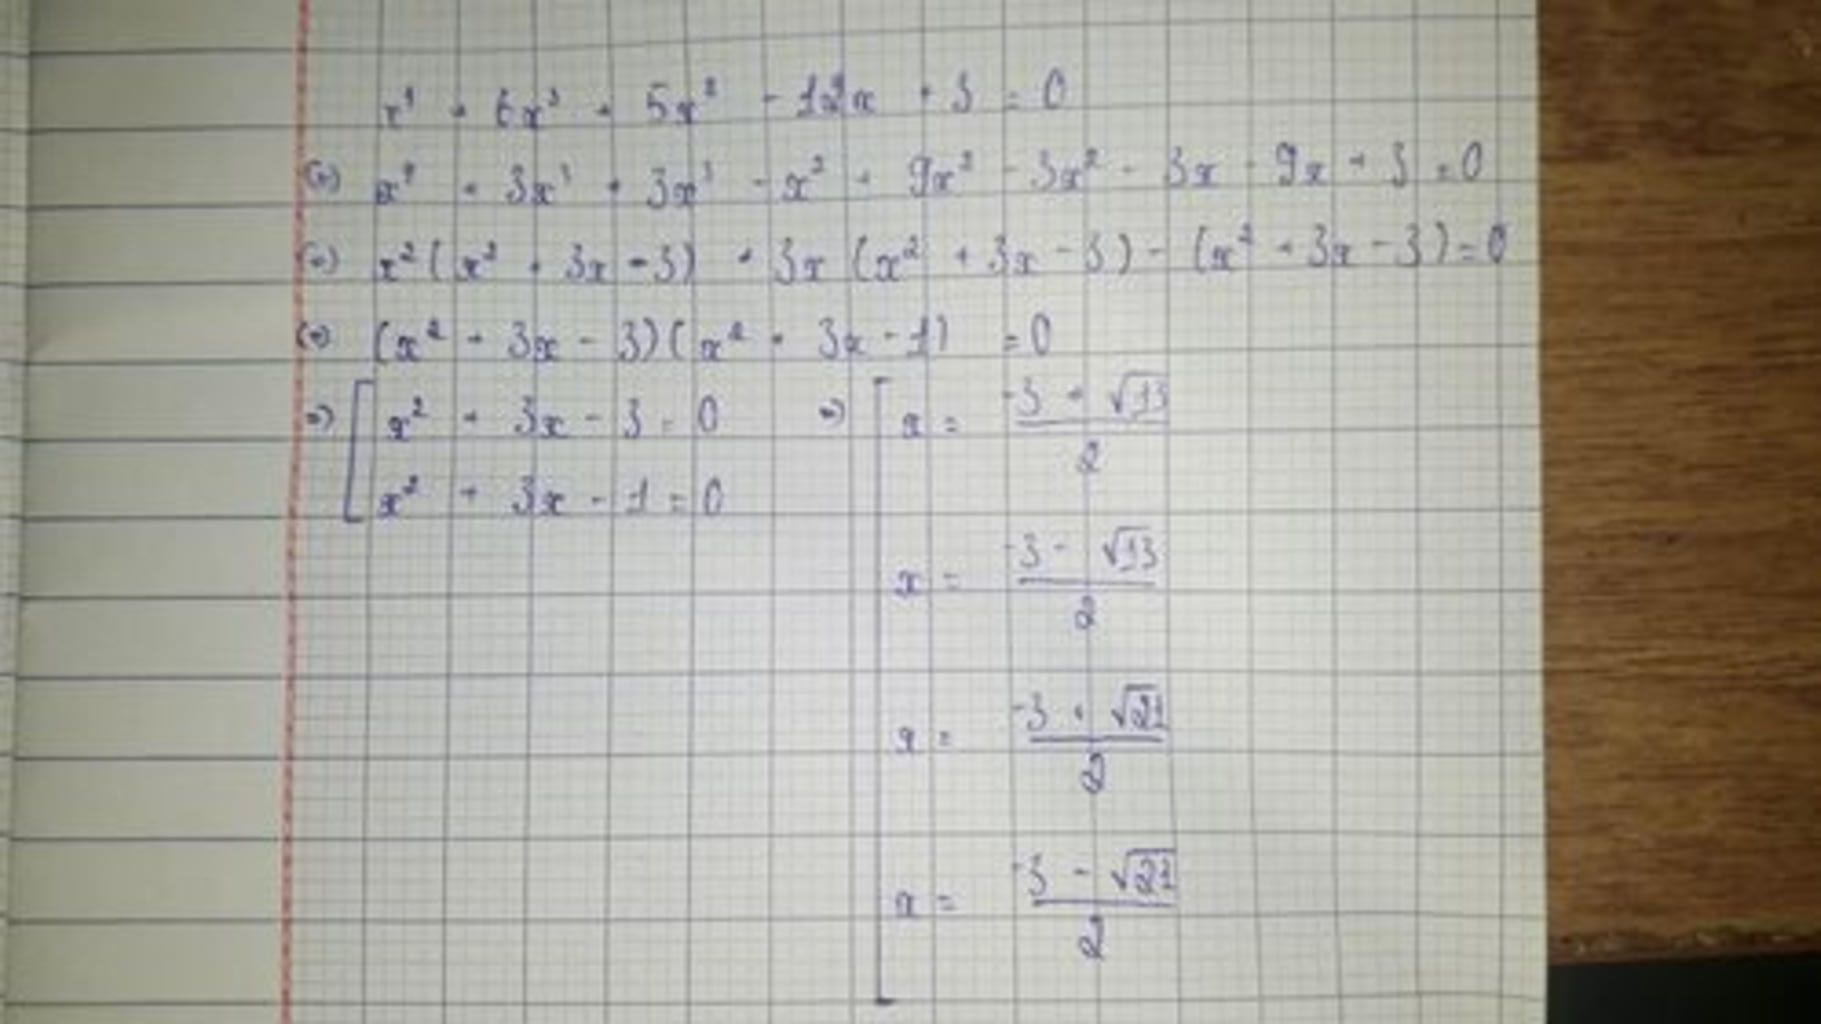 x⁴ + 6x³ + 5x² - 12x + 3 = 0
(=) x⁴ + 3x³ + 3x³ - x² + 9x² - 3x² - 3x - 9x + 3 = 0
(=) x² (x² + 3x - 3) + 3x (x² + 3x - 3) - (x² + 3x - 3) = 0
(=) (x² + 3x - 3) (x² + 3x - 1) = 0
=) [ x² + 3x - 3 = 0 =) [ x = (-3 + √13)/2
x² + 3x - 1 = 0
x = (-3 - √13)/2
x = (-3 + √21)/2
x = (-3 - √21)/2